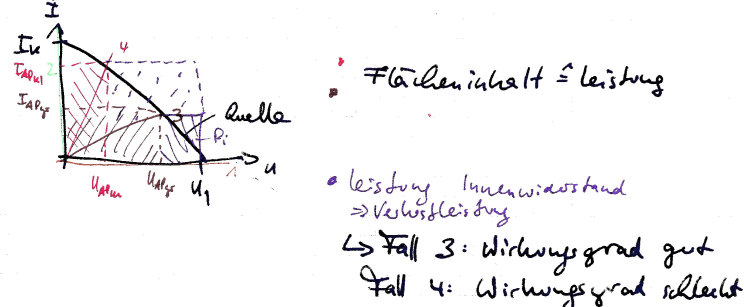 I
4
Ik
2
3
Quelle
Pi
U
U1
1
Flächeninhalt ≙ Leistung
Leistung Innenwiderstand
⇒ Verlustleistung
↳ Fall 3: Wirkungsgrad gut
Fall 4: Wirkungsgrad schlecht